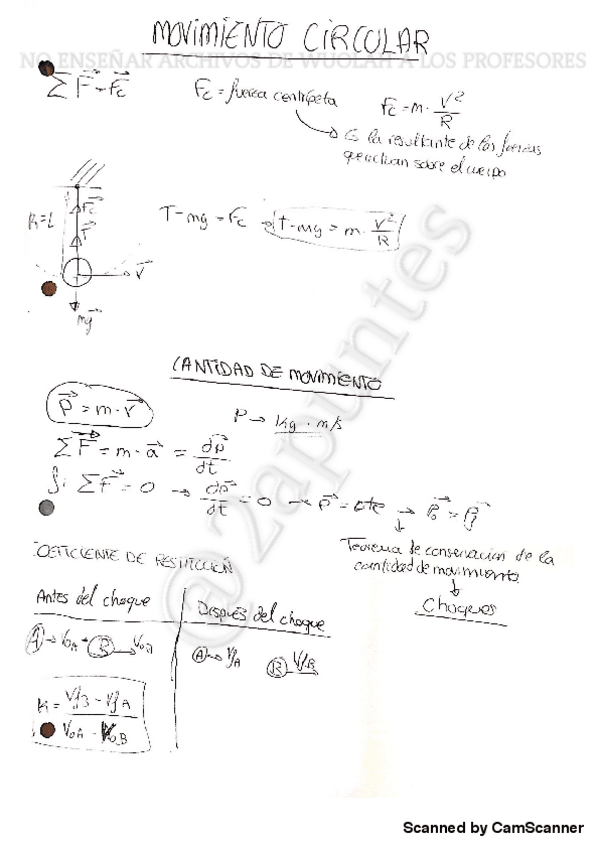 MOVIMIENTO CIRCULAR
NO ENSEÑAR ARCHIVOS DE WUOLAH A LOS PROFESORES
ΣF⃗ = F⃗c
Fc = fuerza centrípeta
Fc = m · V²/R
→ Es la resultante de las fuerzas
que actúan sobre el cuerpo
R=L
Fc
T
V⃗
mg⃗
T-mg = Fc → T-mg = m · V²/R
CANTIDAD DE MOVIMIENTO
P⃗ = m · V⃗
P → kg · m/s
ΣF⃗ = m · a⃗ = dp⃗/dt
Si ΣF⃗ = 0 → dp⃗/dt = 0 → P⃗ = cte → P⃗o = P⃗f
Teorema de conservación de la
cantidad de movimiento
Choques
COEFICIENTE DE RESTITUCIÓN
Antes del choque
Después del choque
A → VoA B → VoB
A → VfA B → VfB
K = VfB - VfA / VoA - VoB
@2apuntes
Scanned by CamScanner